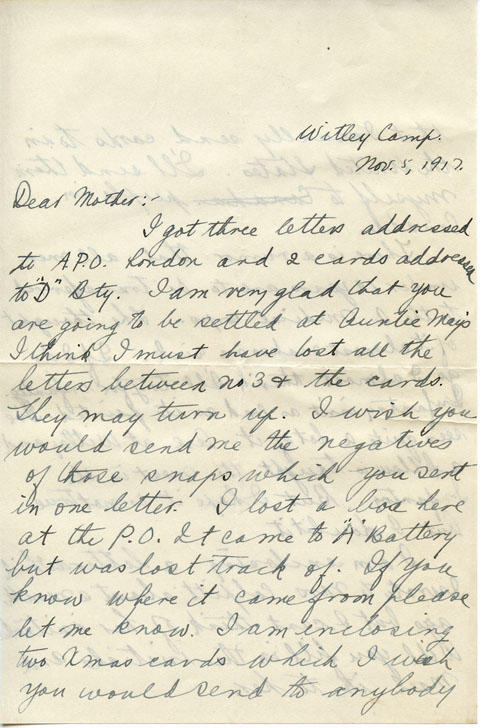 Witley Camp.
Nov. 5, 1917.
Dear Mother:-
I got three letters addressed
to A.P.O. London and 2 cards addressed
to "D" Bty. I am very glad that you
are going to be settled at Auntie May's
I think I must have lost all the
letters between no 3 & the cards.
They may turn up. I wish you
would send me the negatives
of those snaps which you sent
in one letter. I lost a box here
at the P.O. It came to "A" Battery
but was lost track of. If you
know where it came from please
let me know. I am enclosing
two Xmas cards which I wish
you would send to anybody